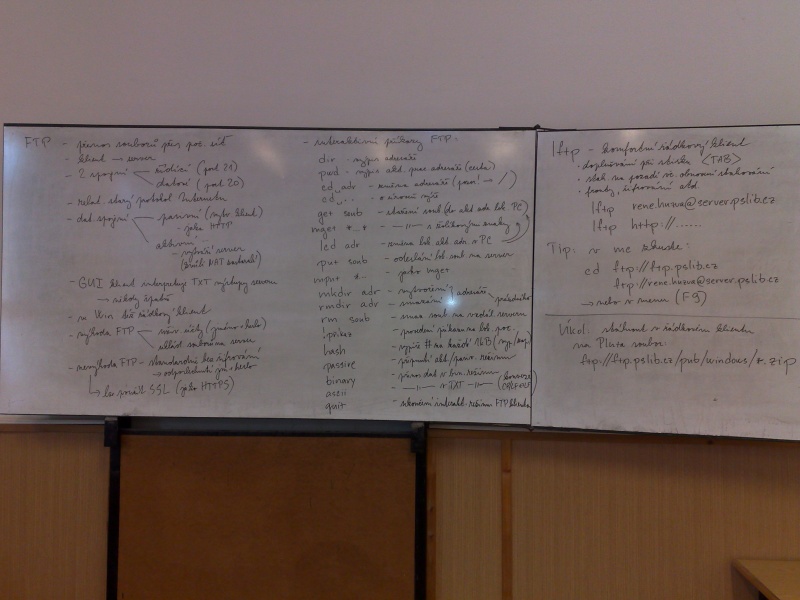 FTP - přenos souborů přes poč. síť
- klient → server
- 2 spojení
řídící (port 21)
datové (port 20)
- relat. starý protokol Internetu
- dat. spojení
pasivní (klient)
- jako HTTP
aktivní
- vytváří server
- GUI klient interpretuje TXT výstupy serveru
→ někdy špatně
- ve Win též řádkový klient
- výhoda FTP
(jméno + heslo)
- nevýhoda FTP - standardně bez šifrování
→ lze použít SSL (jako HTTPS)
- interaktivní příkazy FTP -
dir - výpis adresáře
pwd - výpis akt. prac. adresáře (cesta)
cd adr - změna adresáře (pozor! → /)
cd .. - o úroveň výše
get soub - stažení soub. (do akt. adr. lok. PC)
mget *.* - —"— s
lcd adr - změna lok. akt. adr. v PC
put soub - odeslání lok. soub. na server
mput *.. - jako mget
mkdir adr - vytvoření adresáře
rmdir adr - smazání
prázdného
rm soub - smaz. soub. na vzdál. serveru
!příkaz - provedení příkazu na lok. poč.
hash - vypíše # na každý 1kB (vyp/zap)
passive - přepnutí akt/pasiv. režimu
binary - přenos dat v bin. režimu
ascii - —"— v TXT —"—
quit - ukončení interakt. režimu FTP klienta
lftp - komfortní řádkový klient
- doplňování při stisku <TAB>
- stah. na pozadí vč. obnovení stahování
- fronty, šifrování atd.
lftp rene.huzva@server.pslib.cz
lftp http://......
Tip: v mc zkuste:
cd ftp://ftp.pslib.cz
ftp://rene.huzva@server.pslib.cz
→ nebo v menu (F9)
Úkol: stáhnout v řádkovém klientu
na Pluta soubor:
ftp://ftp.pslib.cz/pub/windows/*.zip